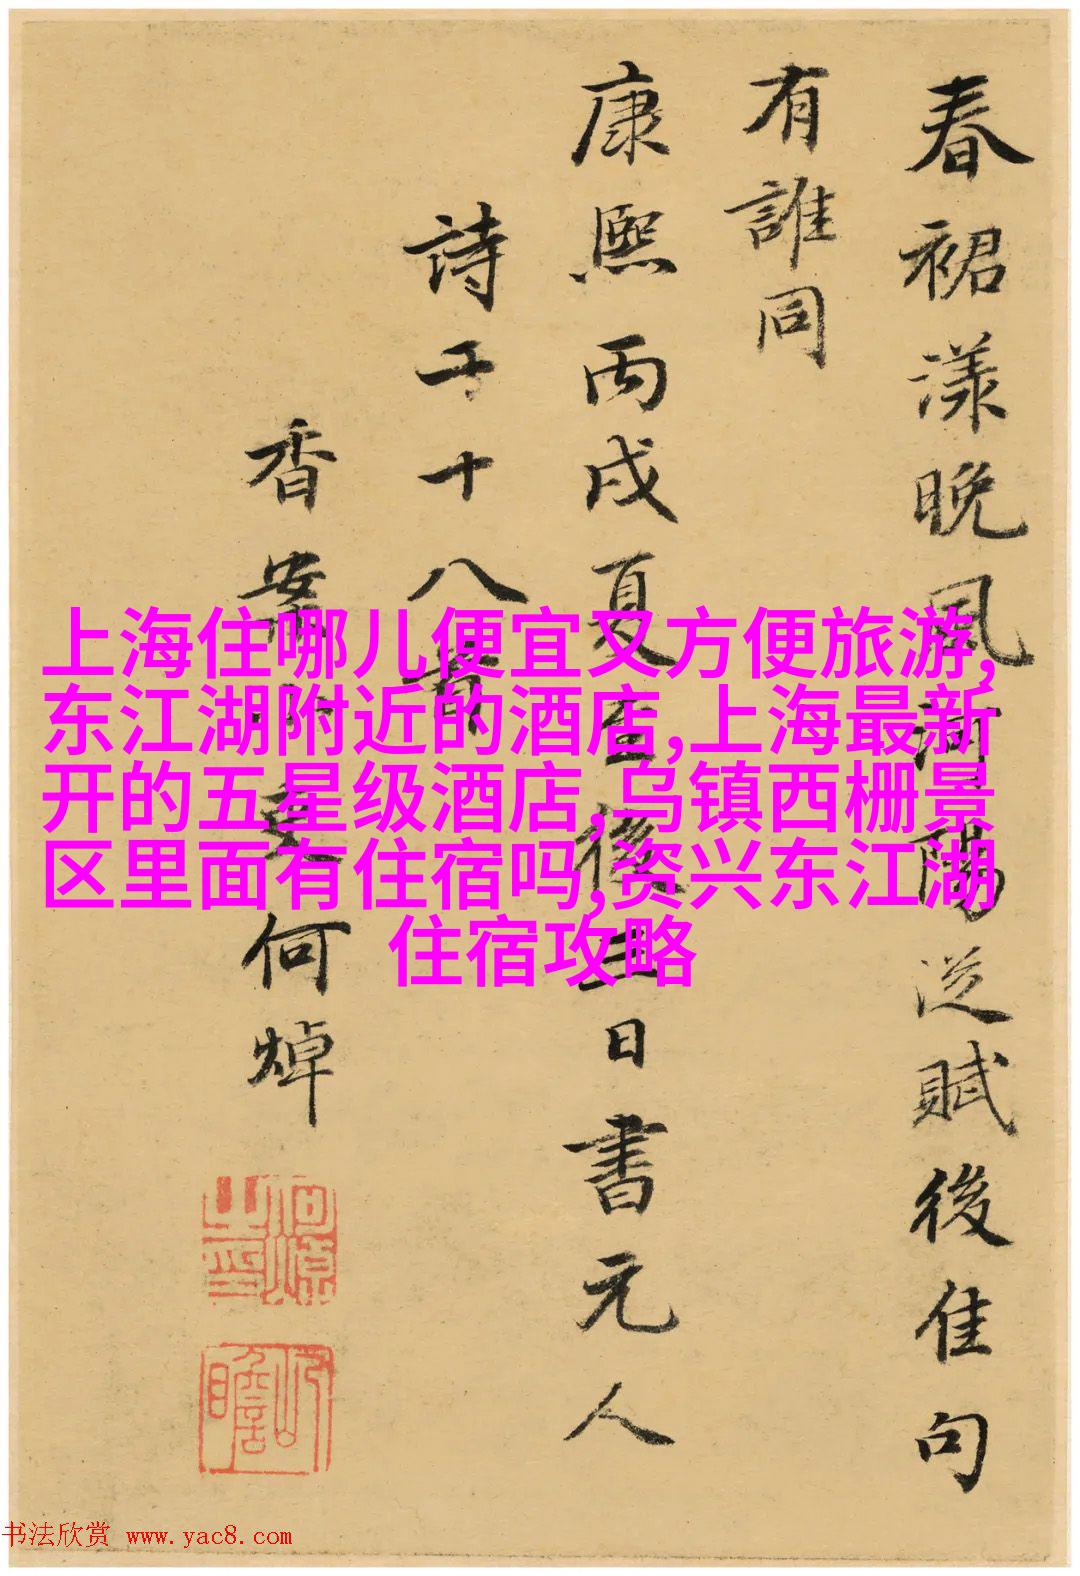 春裙漾晚風河陽從賦後佳句
有誰同
康熙丙戌夏至後三日書元人
詩于十八首
香案小吏何焯
上海住哪儿便宜又方便旅游,
东江湖附近的酒店,上海最新
开的五星级酒店,乌镇西栅景
区里面有住宿吗,资兴东江湖
住宿攻略
书法欣赏 www.yac8.com